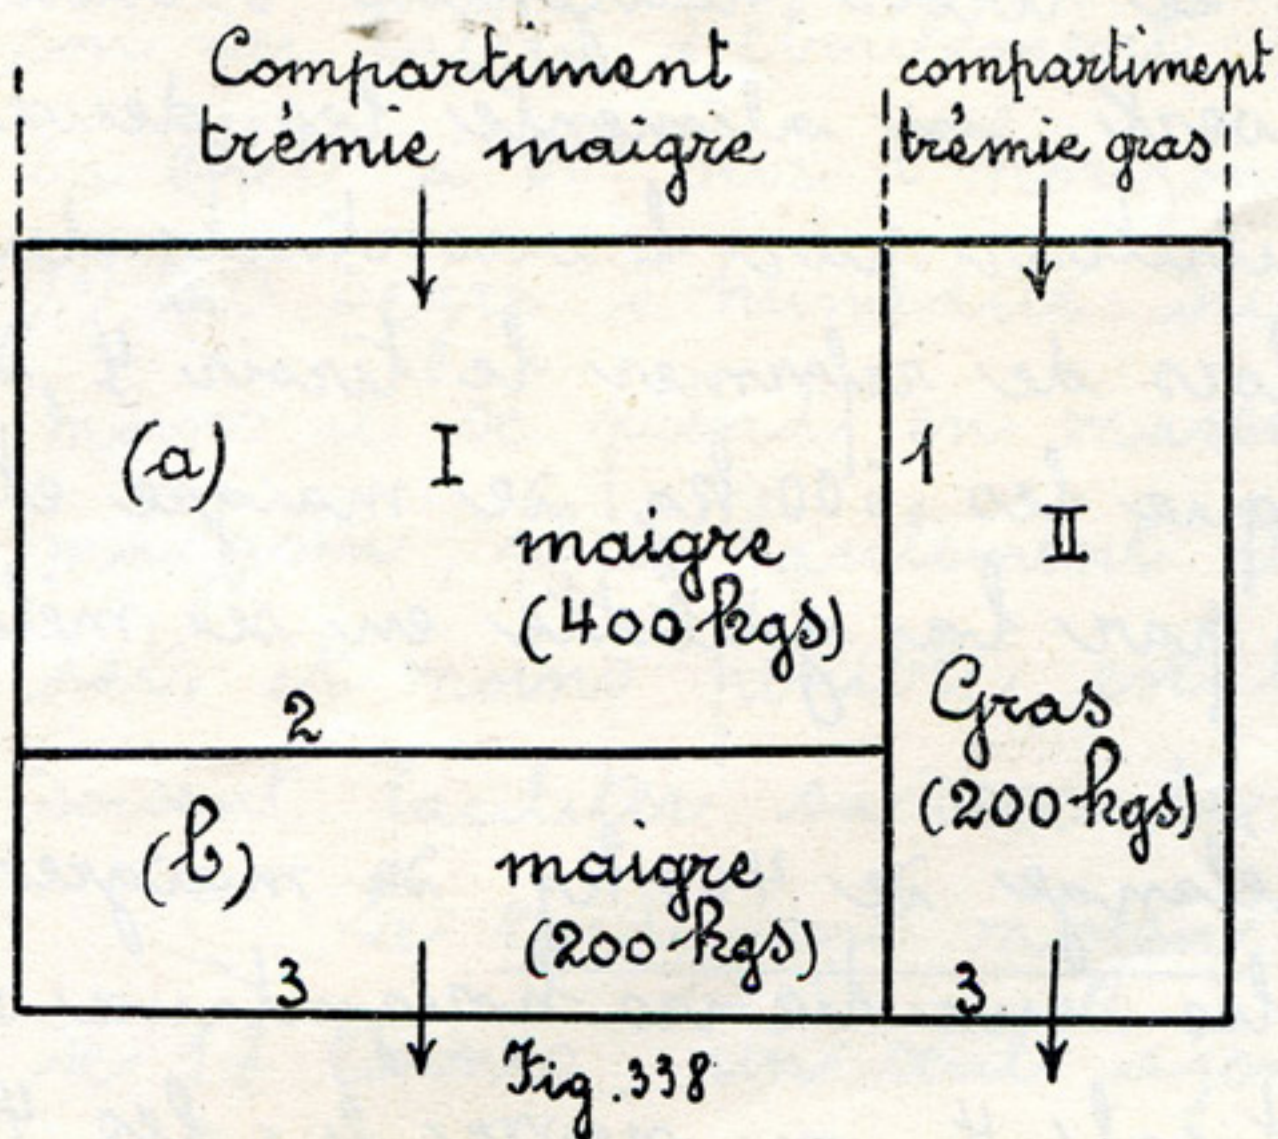 Compartiment
trémie maigre
compartiment
trémie gras
(a)
I
1
II
maigre
(400 kgs)
2
Gras
(200 kgs)
(b)
maigre
(200 kgs)
3
3
Fig. 338